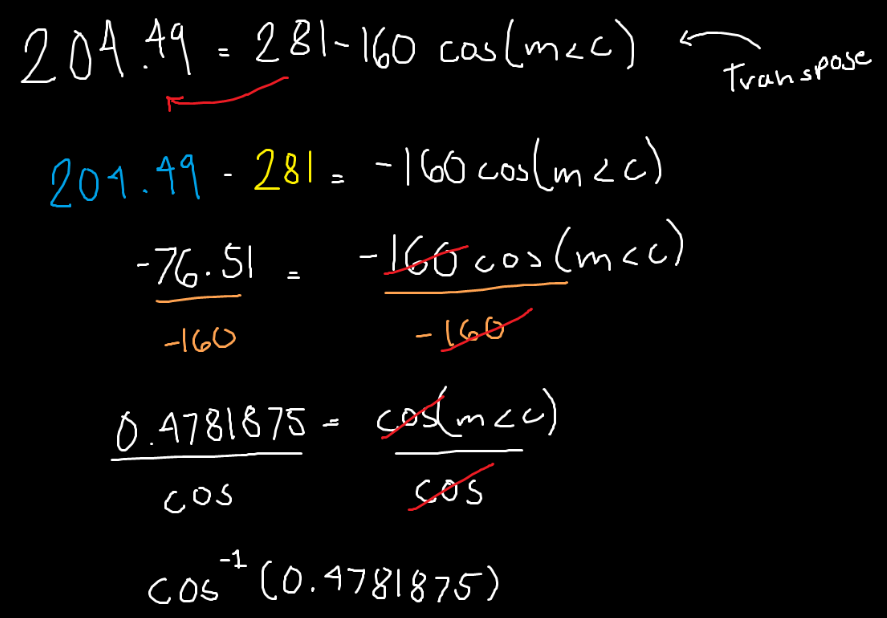 204.49 = 281-160 cos(m<c)
Transpose
204.49 - 281 = -160 cos(m<c)
-76.51 = -160 cos(m<c)
-160 -160
0.4781875 = cos(m<c)
cos cos
cos⁻¹ (0.4781875)